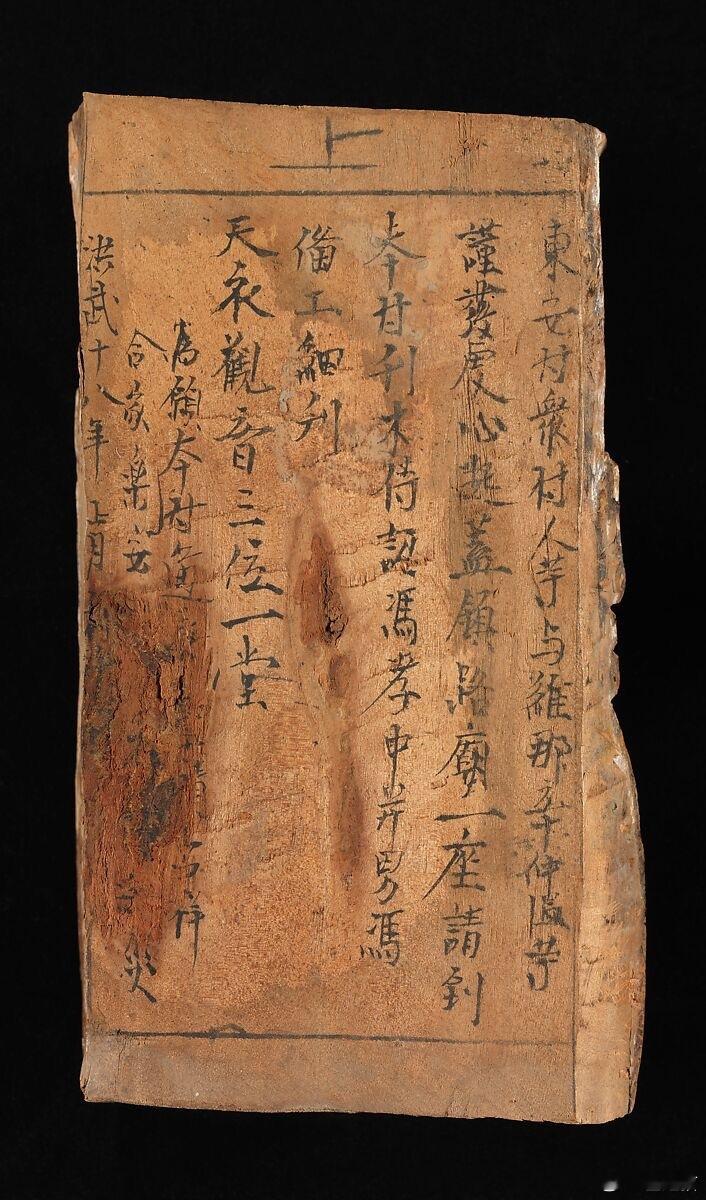 上
東安村衆村人等与維那李仲溫等
謹發虔心起蓋鎮路廟一座請到
本村刊木待詔馮孝中并男馮
俻工細刋
天衣觀音三位一堂
為願本村逺 吉祥
合家樂安 災
洪武十八年正月